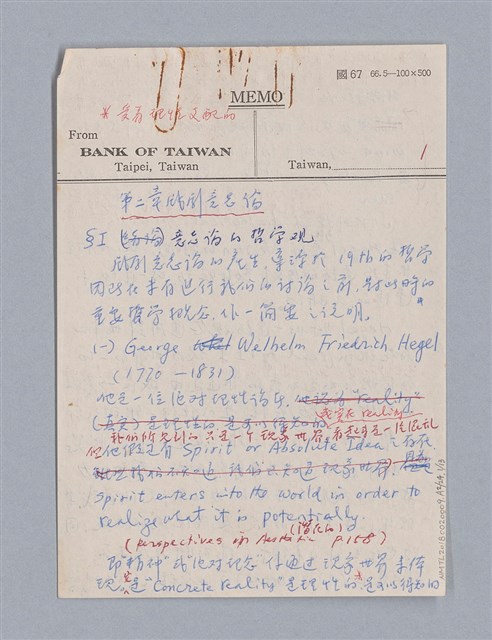 國67 66.5—100×500
MEMO
From
BANK OF TAIWAN
Taipei, Taiwan
Taiwan,
1
第二章戲劇意志論
§I 意志論的哲学观
戲劇意志論的產生，導源於19th的哲学
因此在未有進行我們的討論之前，對此時的
重要哲学概念，作一簡要之說明。
(一) George Welhelm Friedrich Hegel
(1770 —1831)
他是一位絕对理性論者，他認為"reality"
(真实)是理性的是可以得知的
我們所見到的只是一个現象世界
但他假定有 Spirit or Absolute Idea 之存在
Spirit enters into the world in order to
realize what it is potentially
(潛在的)
(Perspectives in Aesthetic P.158)
即"精神"或"绝对理念"
"Concrete reality"是理性的，是可以得知的
NMTL20180020009